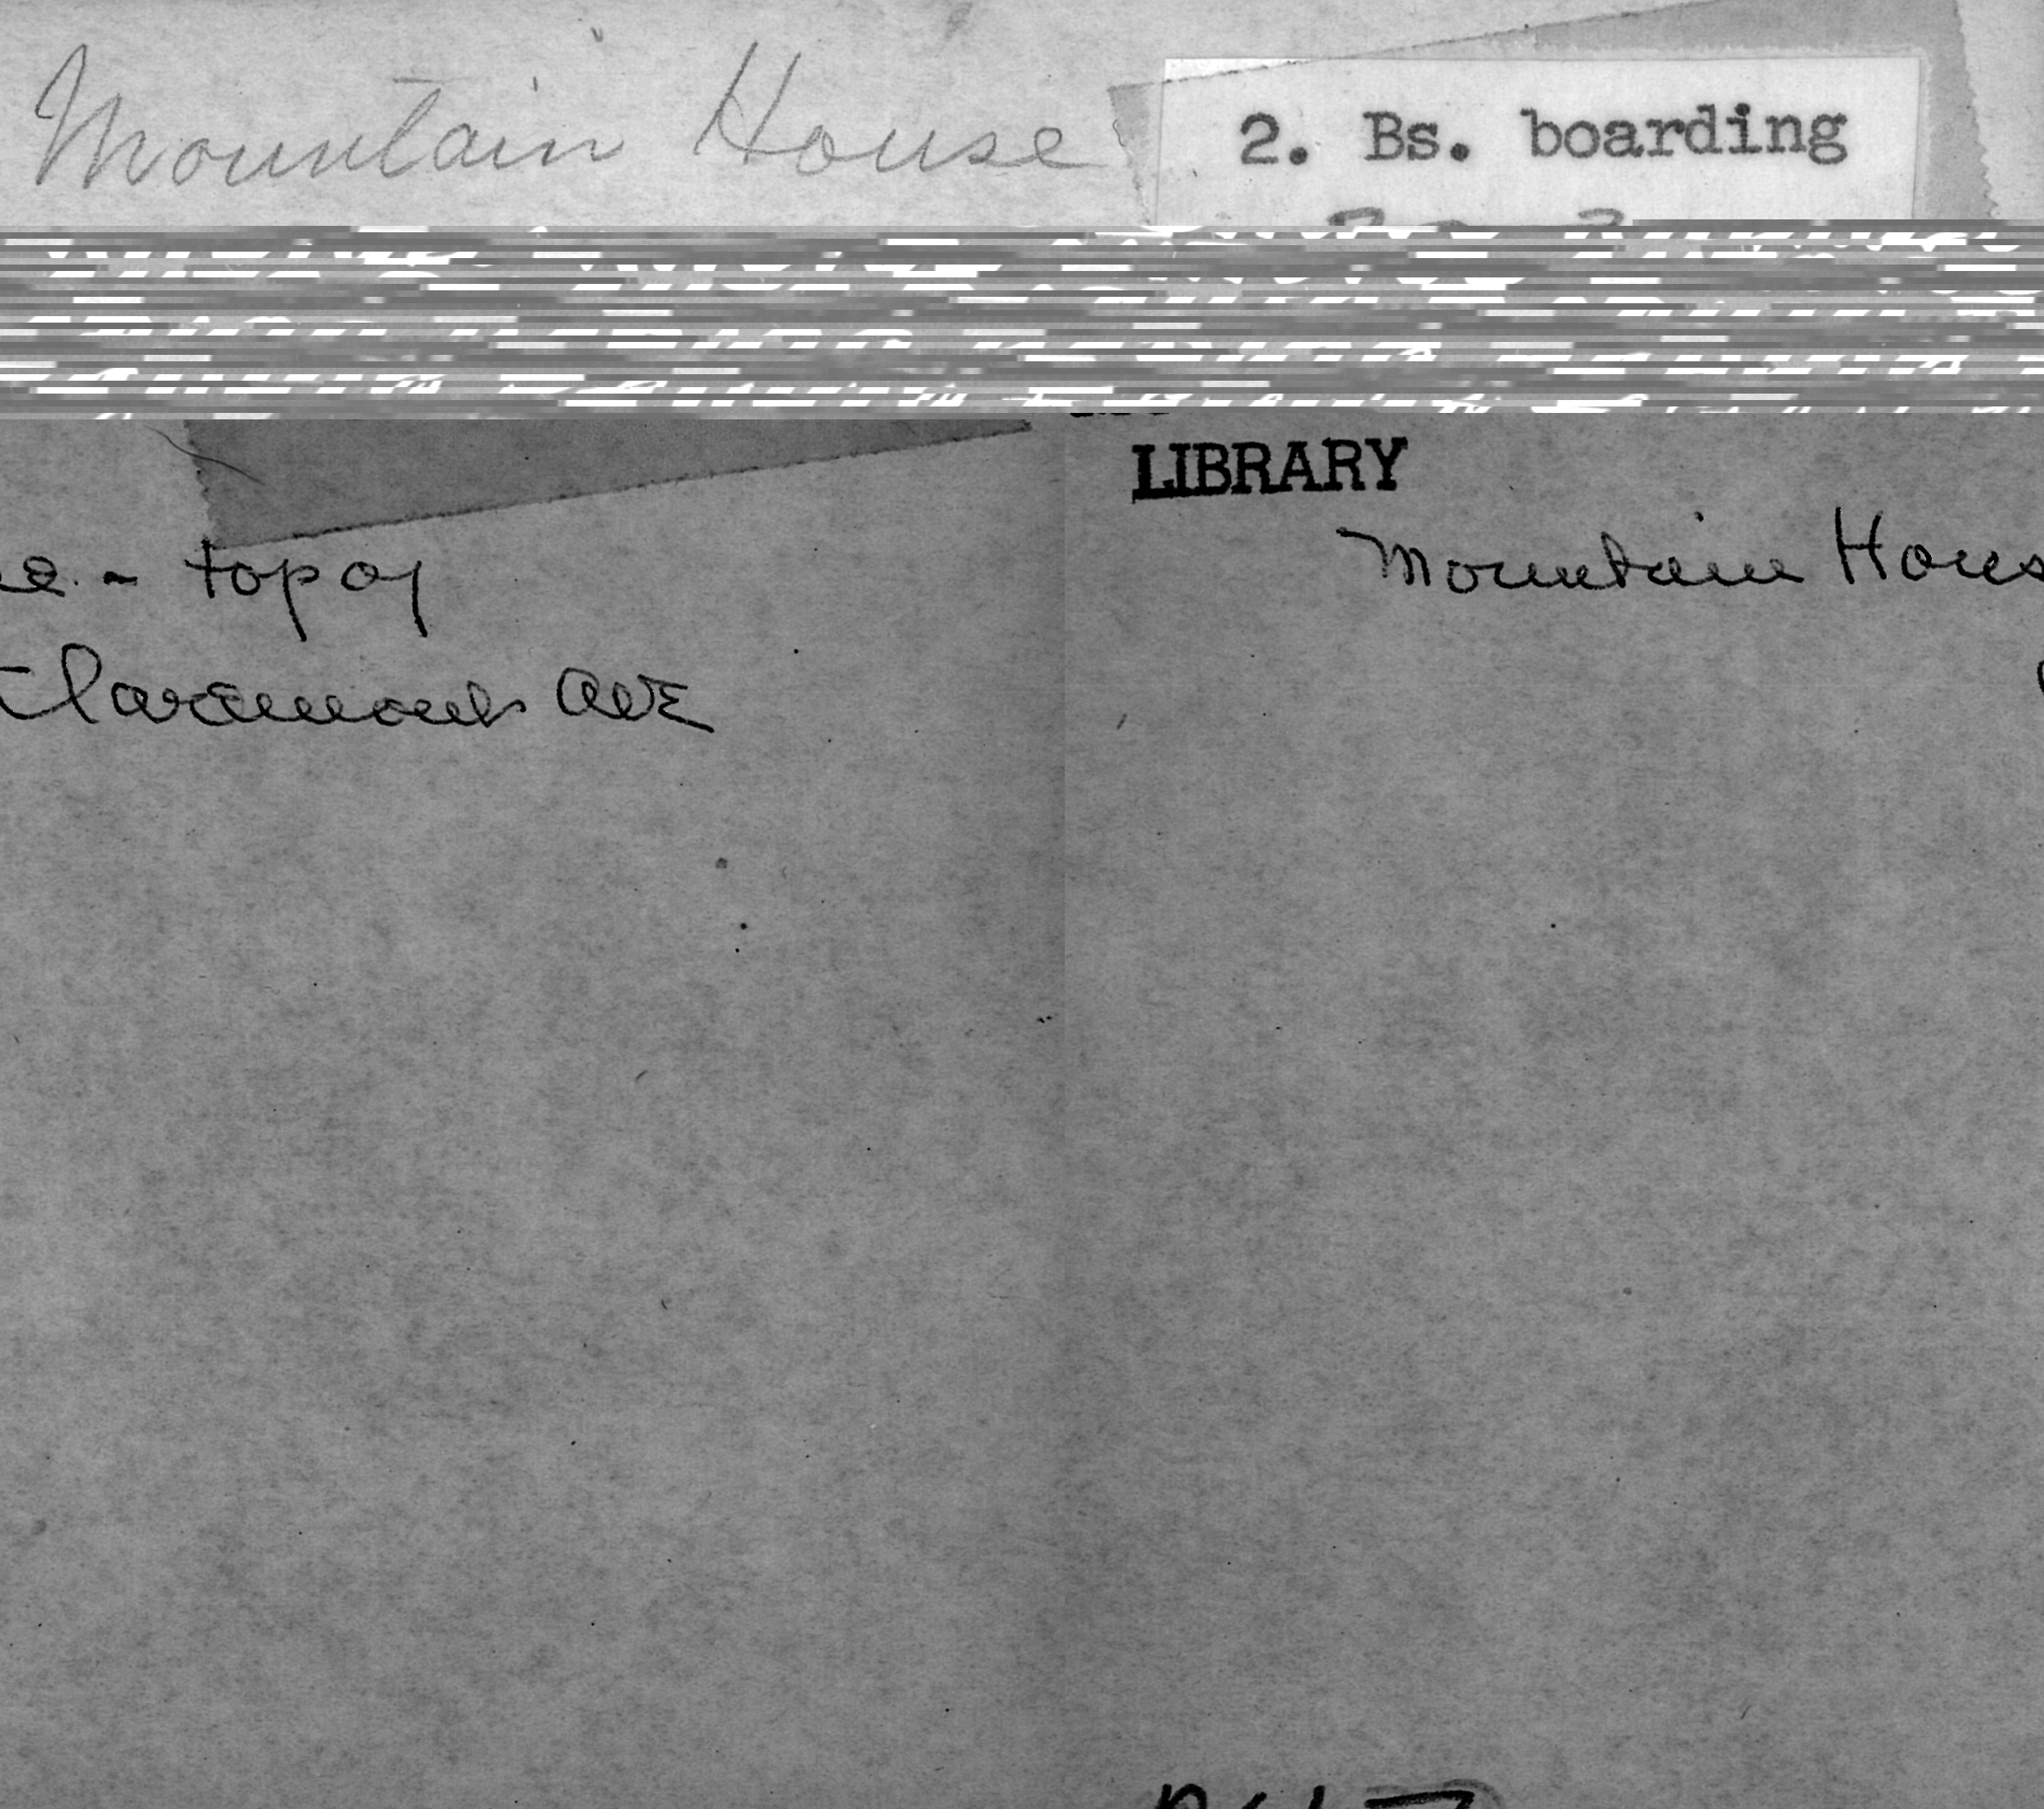 Mountain House
2. Bs. boarding
LIBRARY
- top of
Mountain Hous
Claremont AVE